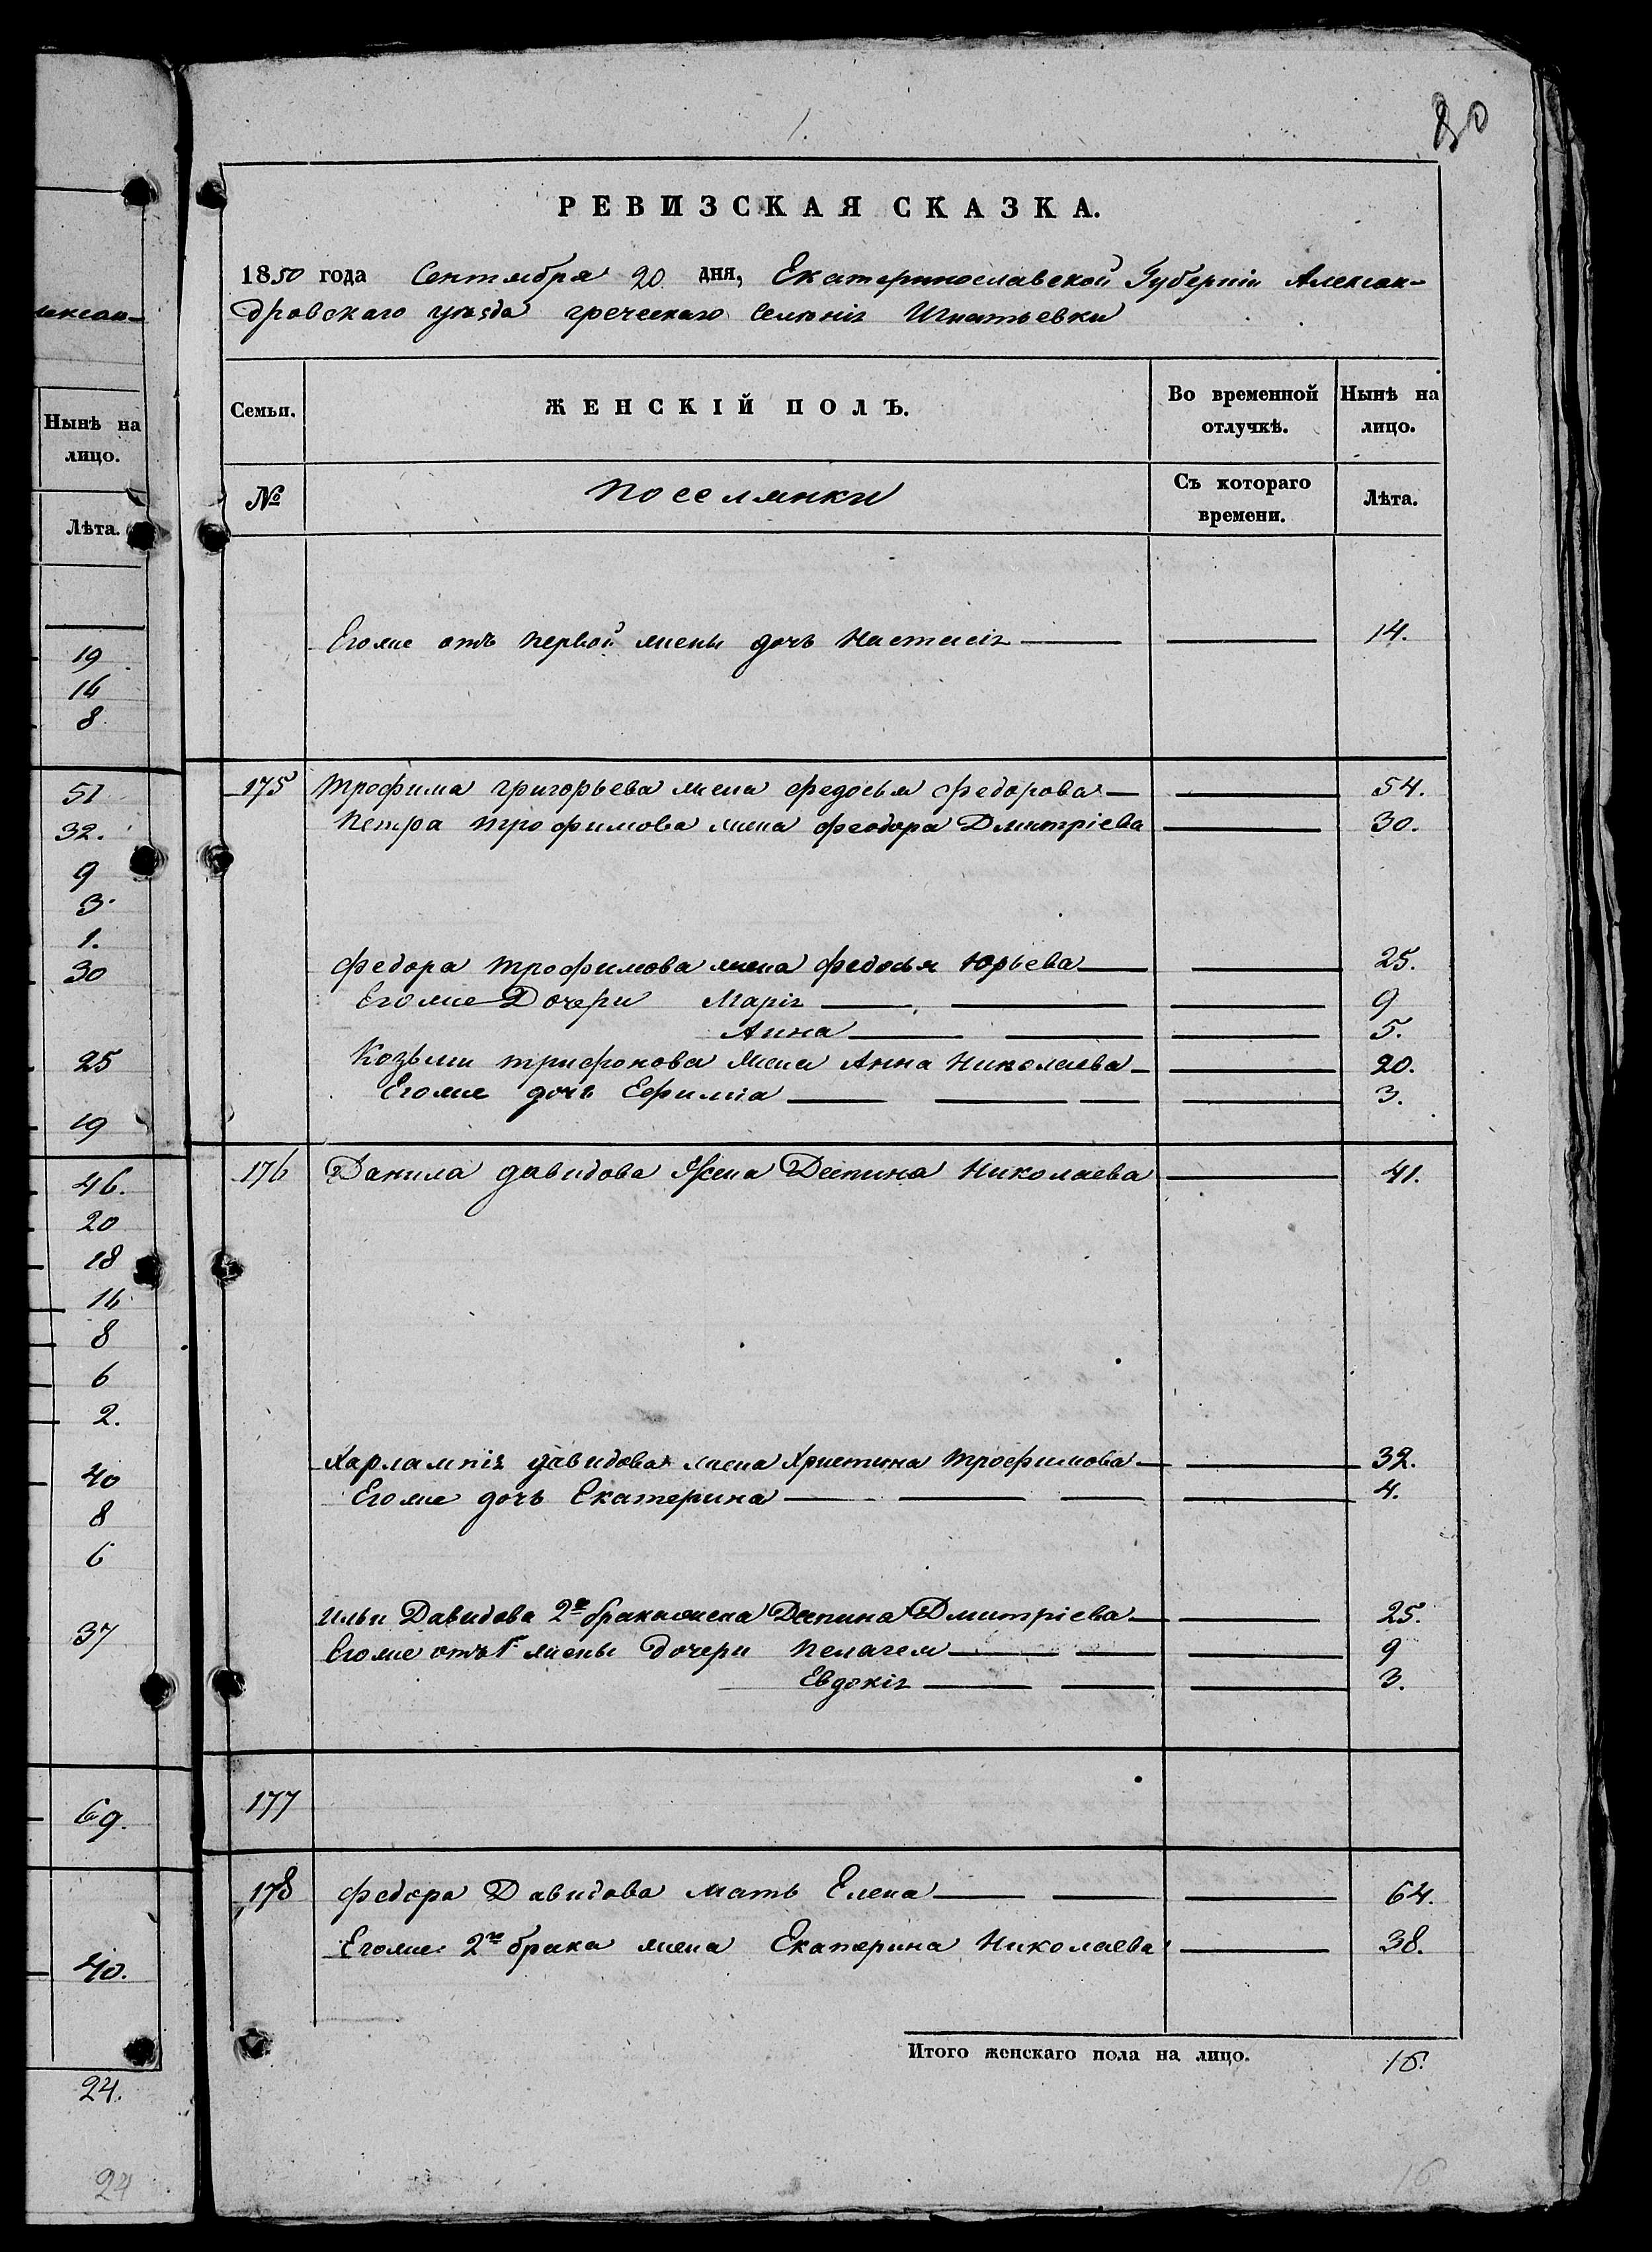 ксан-
Нынѣ на
лицо.
Лѣта.
19
16
8
51
32.
9
3
1.
30
25
19
46.
20
18
16
8
6
2.
40
8
6
37
69.
40.
24.
24
РЕВИЗСКАЯ СКАЗКА.
1850 года Сентября 20 дня, Екатеринославской Губерніи Алексан-
дровскаго уѣзда греческаго Селенія Игнатьевки
Семьи. ЖЕНСКІЙ ПОЛЪ. Во временной отлучкѣ. Нынѣ на лицо.
№ Поселянки Съ котораго времени. Лѣта.
Егоже отъ первой жены дочь Настасія 14.
175 Трофима григорьева жена Федосья Федорова 54.
Петра Трофимова жена Феодора Дмитріева 30.
Федора Трофимова жена Федосья Юрьева 25.
Егоже Дочери Марія 9
Анна 5.
Козьмы трифонова жена Анна Николаева 20.
Егоже дочь Ефимія 3.
176 Данила давидова Жена Деспина Николаева 41.
Харлампія давидова жена Христина Трофимова 32.
Егоже дочь Екатерина 4.
Ильи Давидова 2го брака жена Деспина Дмитріева 25.
Егоже отъ 1й жены Дочери Пелагея 9
Евдокія 3.
177
178 Федора Давидова мать Елена 64.
Егоже 2го брака жена Екатерина Николаева 38.
Итого женскаго пола на лицо. 16.
16